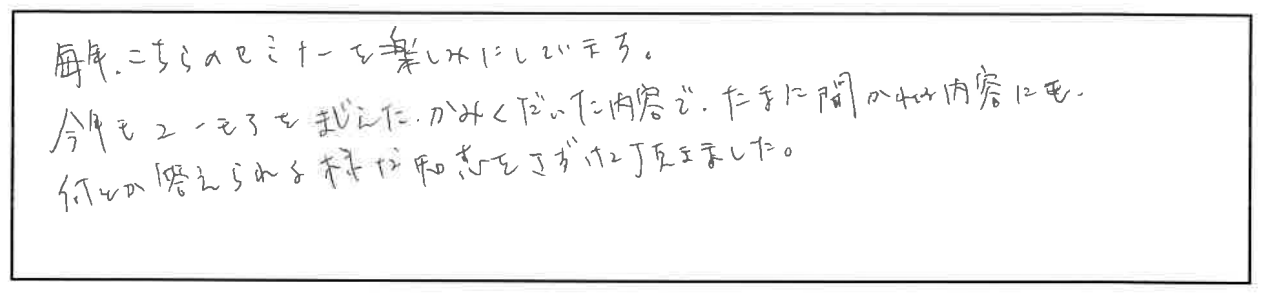 毎年、こちらのセミナーを楽しみにしています。
今年もユーモアをまじえた、かみくだいた内容で、たまに聞かれる内容にも、
何とか答えられる様な知恵をさずけて頂きました。